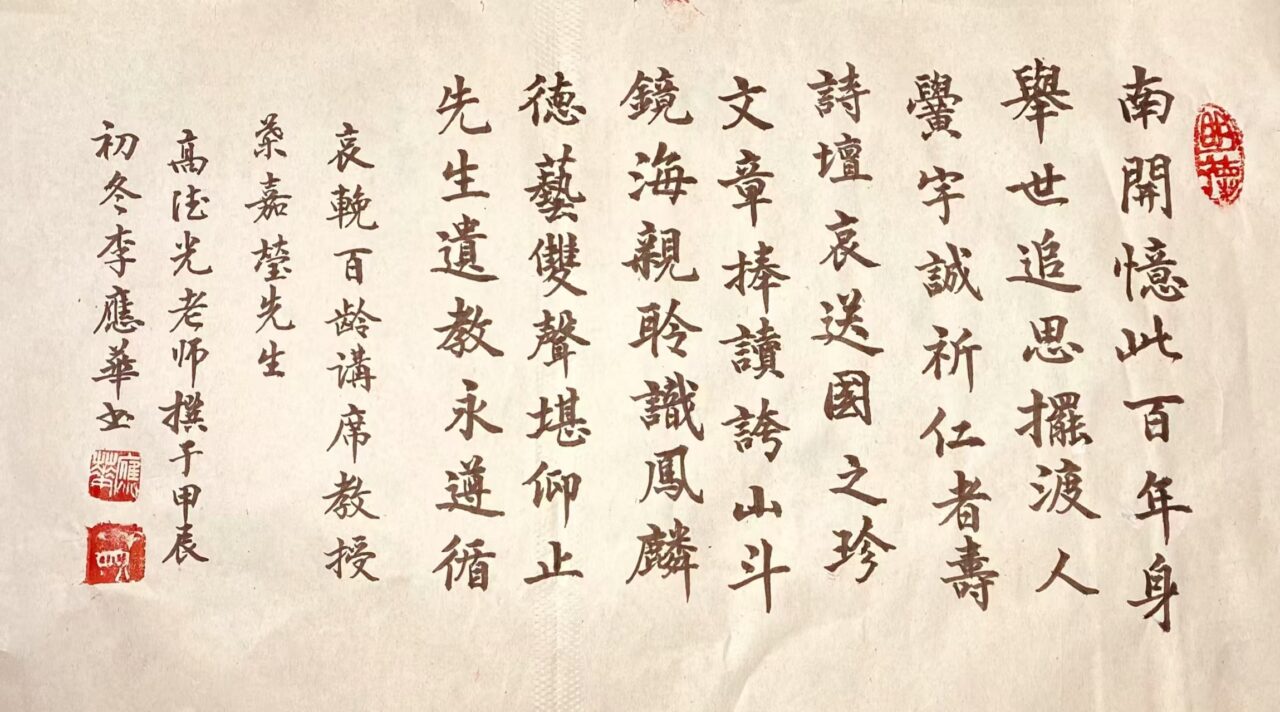 明德
南開憶此百年身
舉世追思擺渡人
黌宇誠祈仁者壽
詩壇哀送國之珍
文章捧讀誇山斗
鏡海親聆識鳳麟
德藝雙聲堪仰止
先生遺教永遵循
哀輓百龄講席教授
葉嘉瑩先生
高德光老师撰于甲辰
初冬李應華书
應華